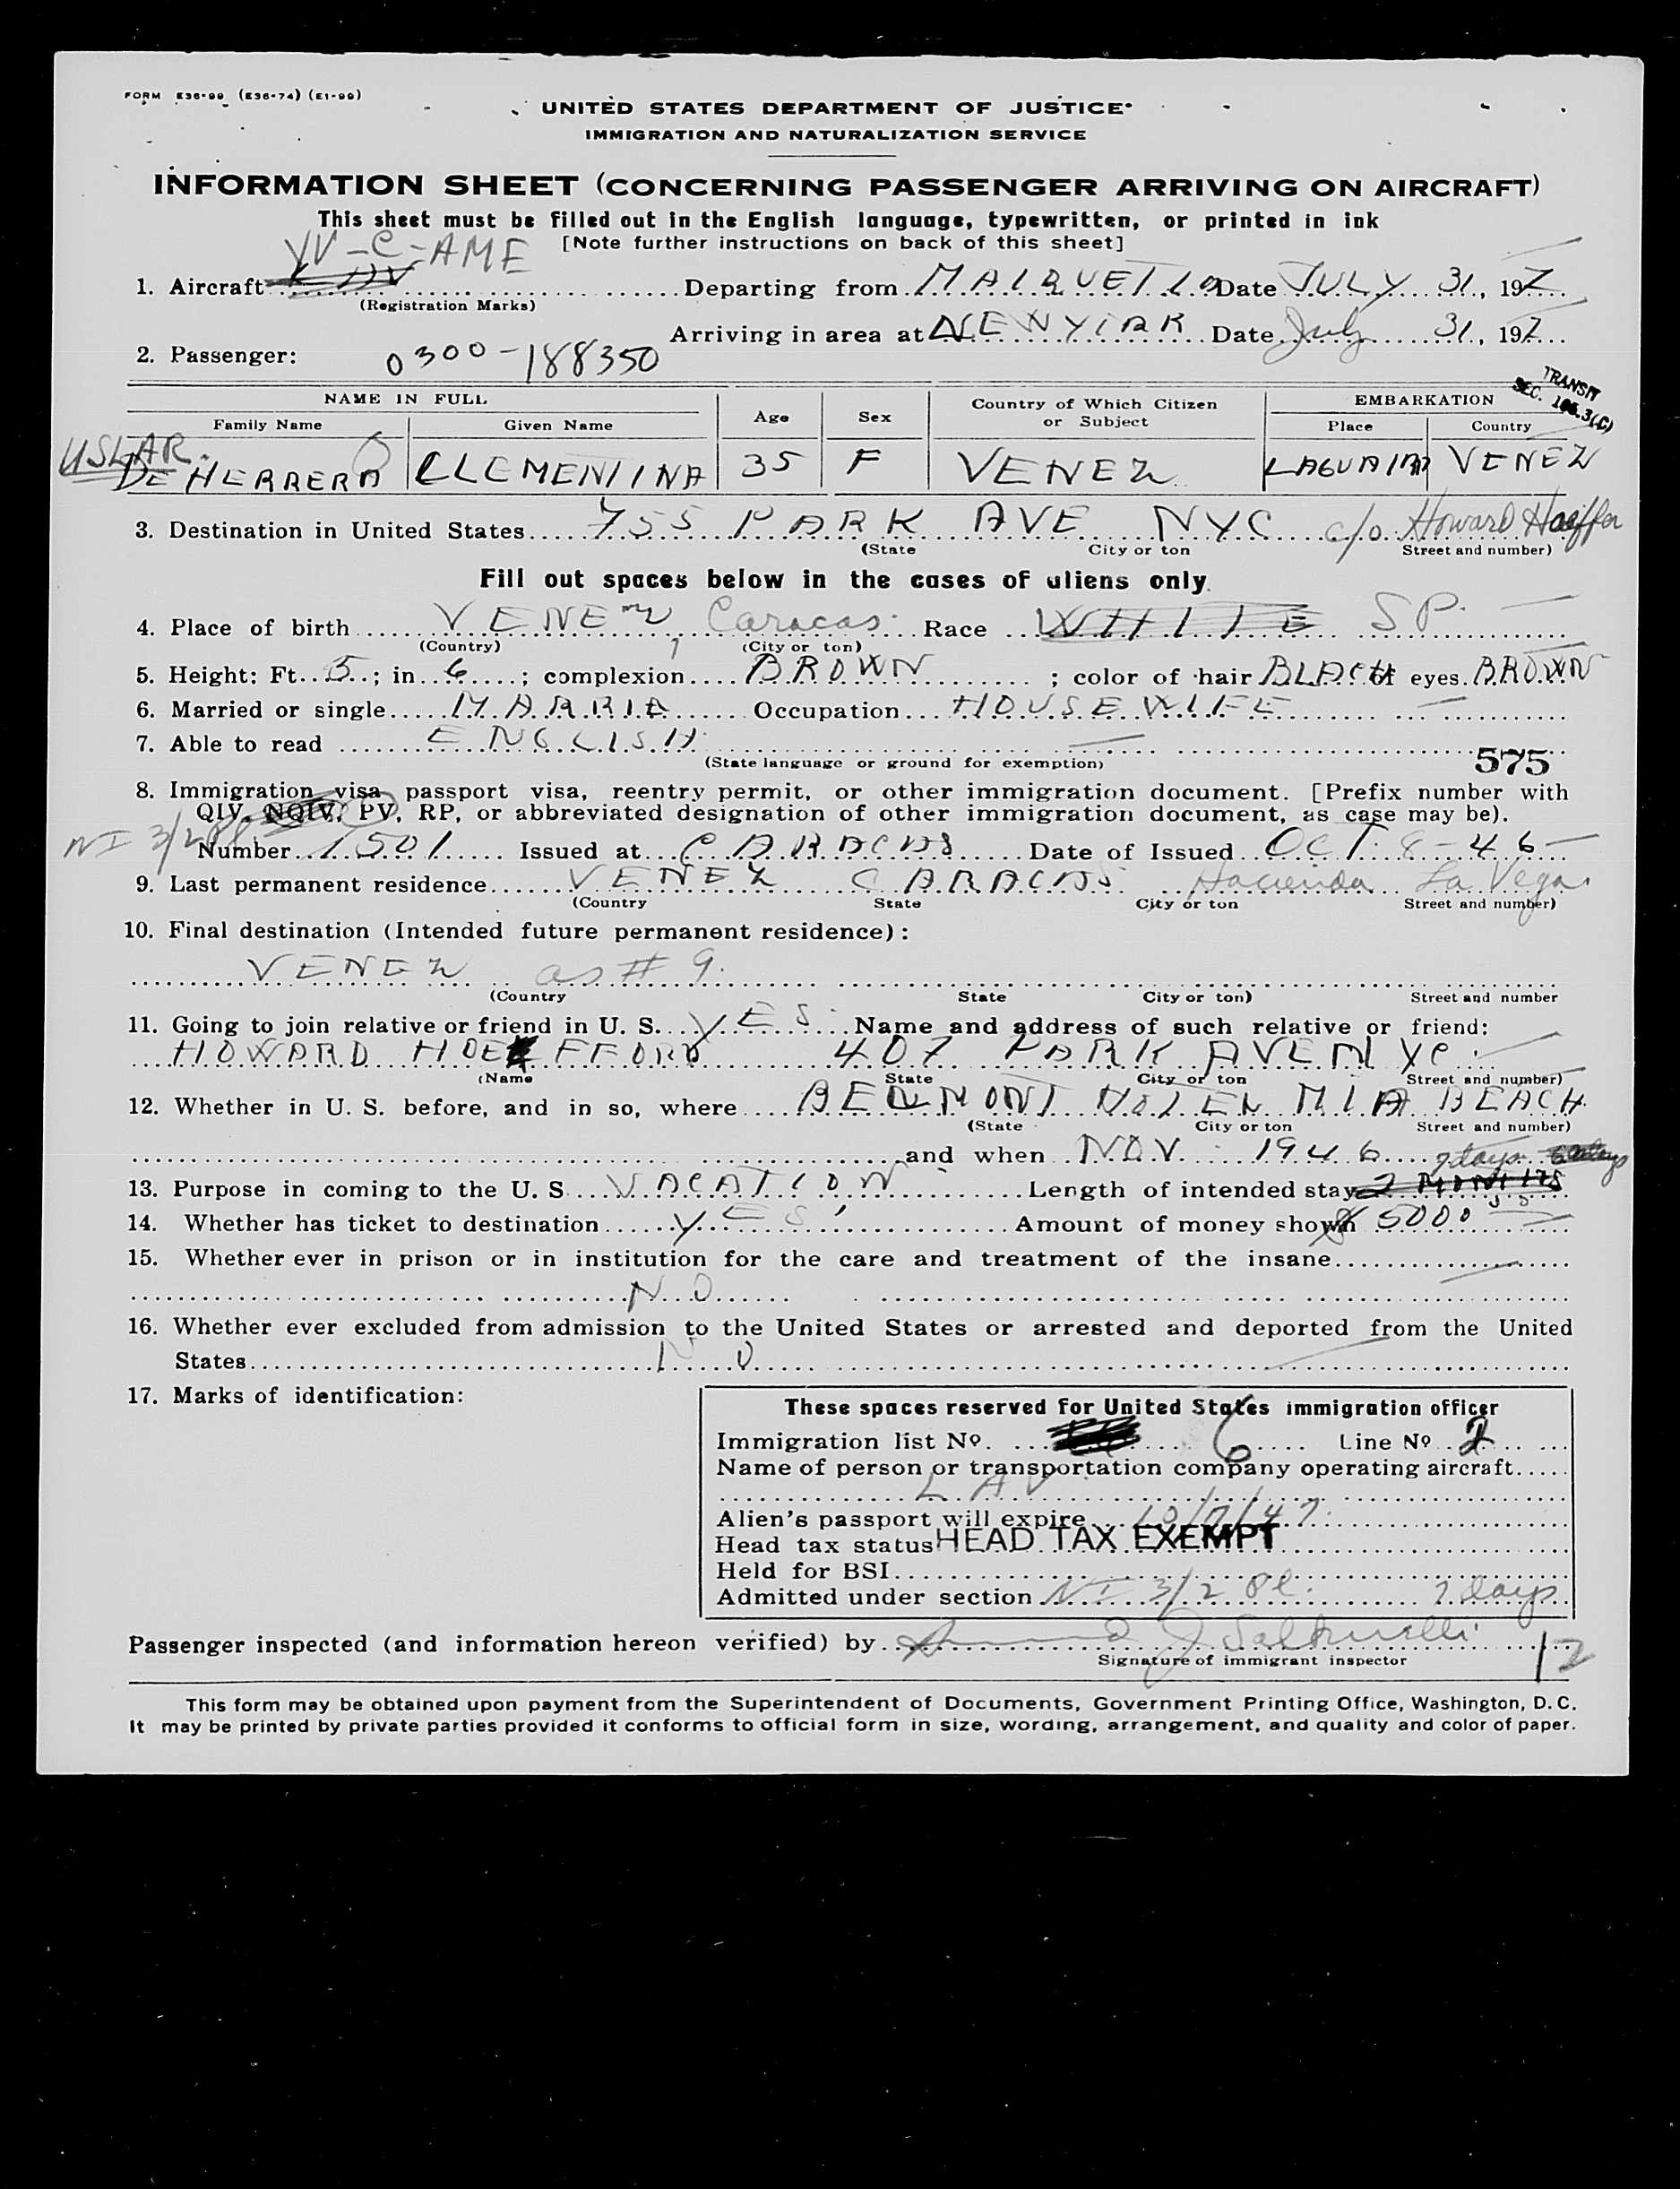 FORM E36-99 (E36-74) (E1-99)
UNITED STATES DEPARTMENT OF JUSTICE
IMMIGRATION AND NATURALIZATION SERVICE
INFORMATION SHEET (CONCERNING PASSENGER ARRIVING ON AIRCRAFT)
This sheet must be filled out in the English language, typewritten, or printed in ink
[Note further instructions on back of this sheet]
YV-C-AME
1. Aircraft Departing from MAIQUETIA Date JULY 31, 197
(Registration Marks)
Arriving in area at NEWYORK Date July 31, 197
2. Passenger: 0300-188350
TRANSIT
SEC. 106.3(C)
NAME IN FULL Age Sex Country of Which Citizen or Subject EMBARKATION
Family Name Given Name Place Country
USLAR
DE HERRERA CLEMENTINA 35 F VENEZ LAGUAIRA VENEZ
3. Destination in United States 755 PARK AVE NYC c/o Howard
(State City or ton Street and number)
Fill out spaces below in the cases of aliens only.
4. Place of birth VENEZ, Caracas Race WHITE SP.
(Country) (City or ton)
5. Height: Ft. 5; in. 6; complexion BROWN; color of hair BLACK eyes. BROWN
6. Married or single MARRIE Occupation HOUSE WIFE
7. Able to read ENGLISH
(State language or ground for exemption)
575
8. Immigration visa passport visa, reentry permit, or other immigration document. [Prefix number with
QIV, NQIV, PV, RP, or abbreviated designation of other immigration document, as case may be).
NI 3/2
Number 1501 Issued at CARACAS Date of Issued OCT. 8-46
9. Last permanent residence VENEZ CARACAS Hacienda La Vega
(Country State City or ton Street and number)
10. Final destination (Intended future permanent residence):
VENEZ as # 9.
(Country State City or ton) Street and number
11. Going to join relative or friend in U. S. YES Name and address of such relative or friend:
HOWARD 407 PARK AVE NYC.
(Name State City or ton Street and number)
12. Whether in U. S. before, and in so, where HOTEL MIA BEACH
(State City or ton Street and number)
and when NOV. 1946 7 days
13. Purpose in coming to the U. S. VACATION Length of intended stay 2 MONTHS
14. Whether has ticket to destination YES Amount of money shown $ 5000
15. Whether ever in prison or in institution for the care and treatment of the insane
NO
16. Whether ever excluded from admission to the United States or arrested and deported from the United
States NO
17. Marks of identification:
These spaces reserved for United States immigration officer
Immigration list No. 6 Line No 2
Name of person or transportation company operating aircraft
LAV
Alien's passport will expire 10/7/47
Head tax status HEAD TAX EXEMPT
Held for BSI
Admitted under section NI 3/2 7 days
Passenger inspected (and information hereon verified) by
Signature of immigrant inspector
12
This form may be obtained upon payment from the Superintendent of Documents, Government Printing Office, Washington, D. C.
It may be printed by private parties provided it conforms to official form in size, wording, arrangement, and quality and color of paper.